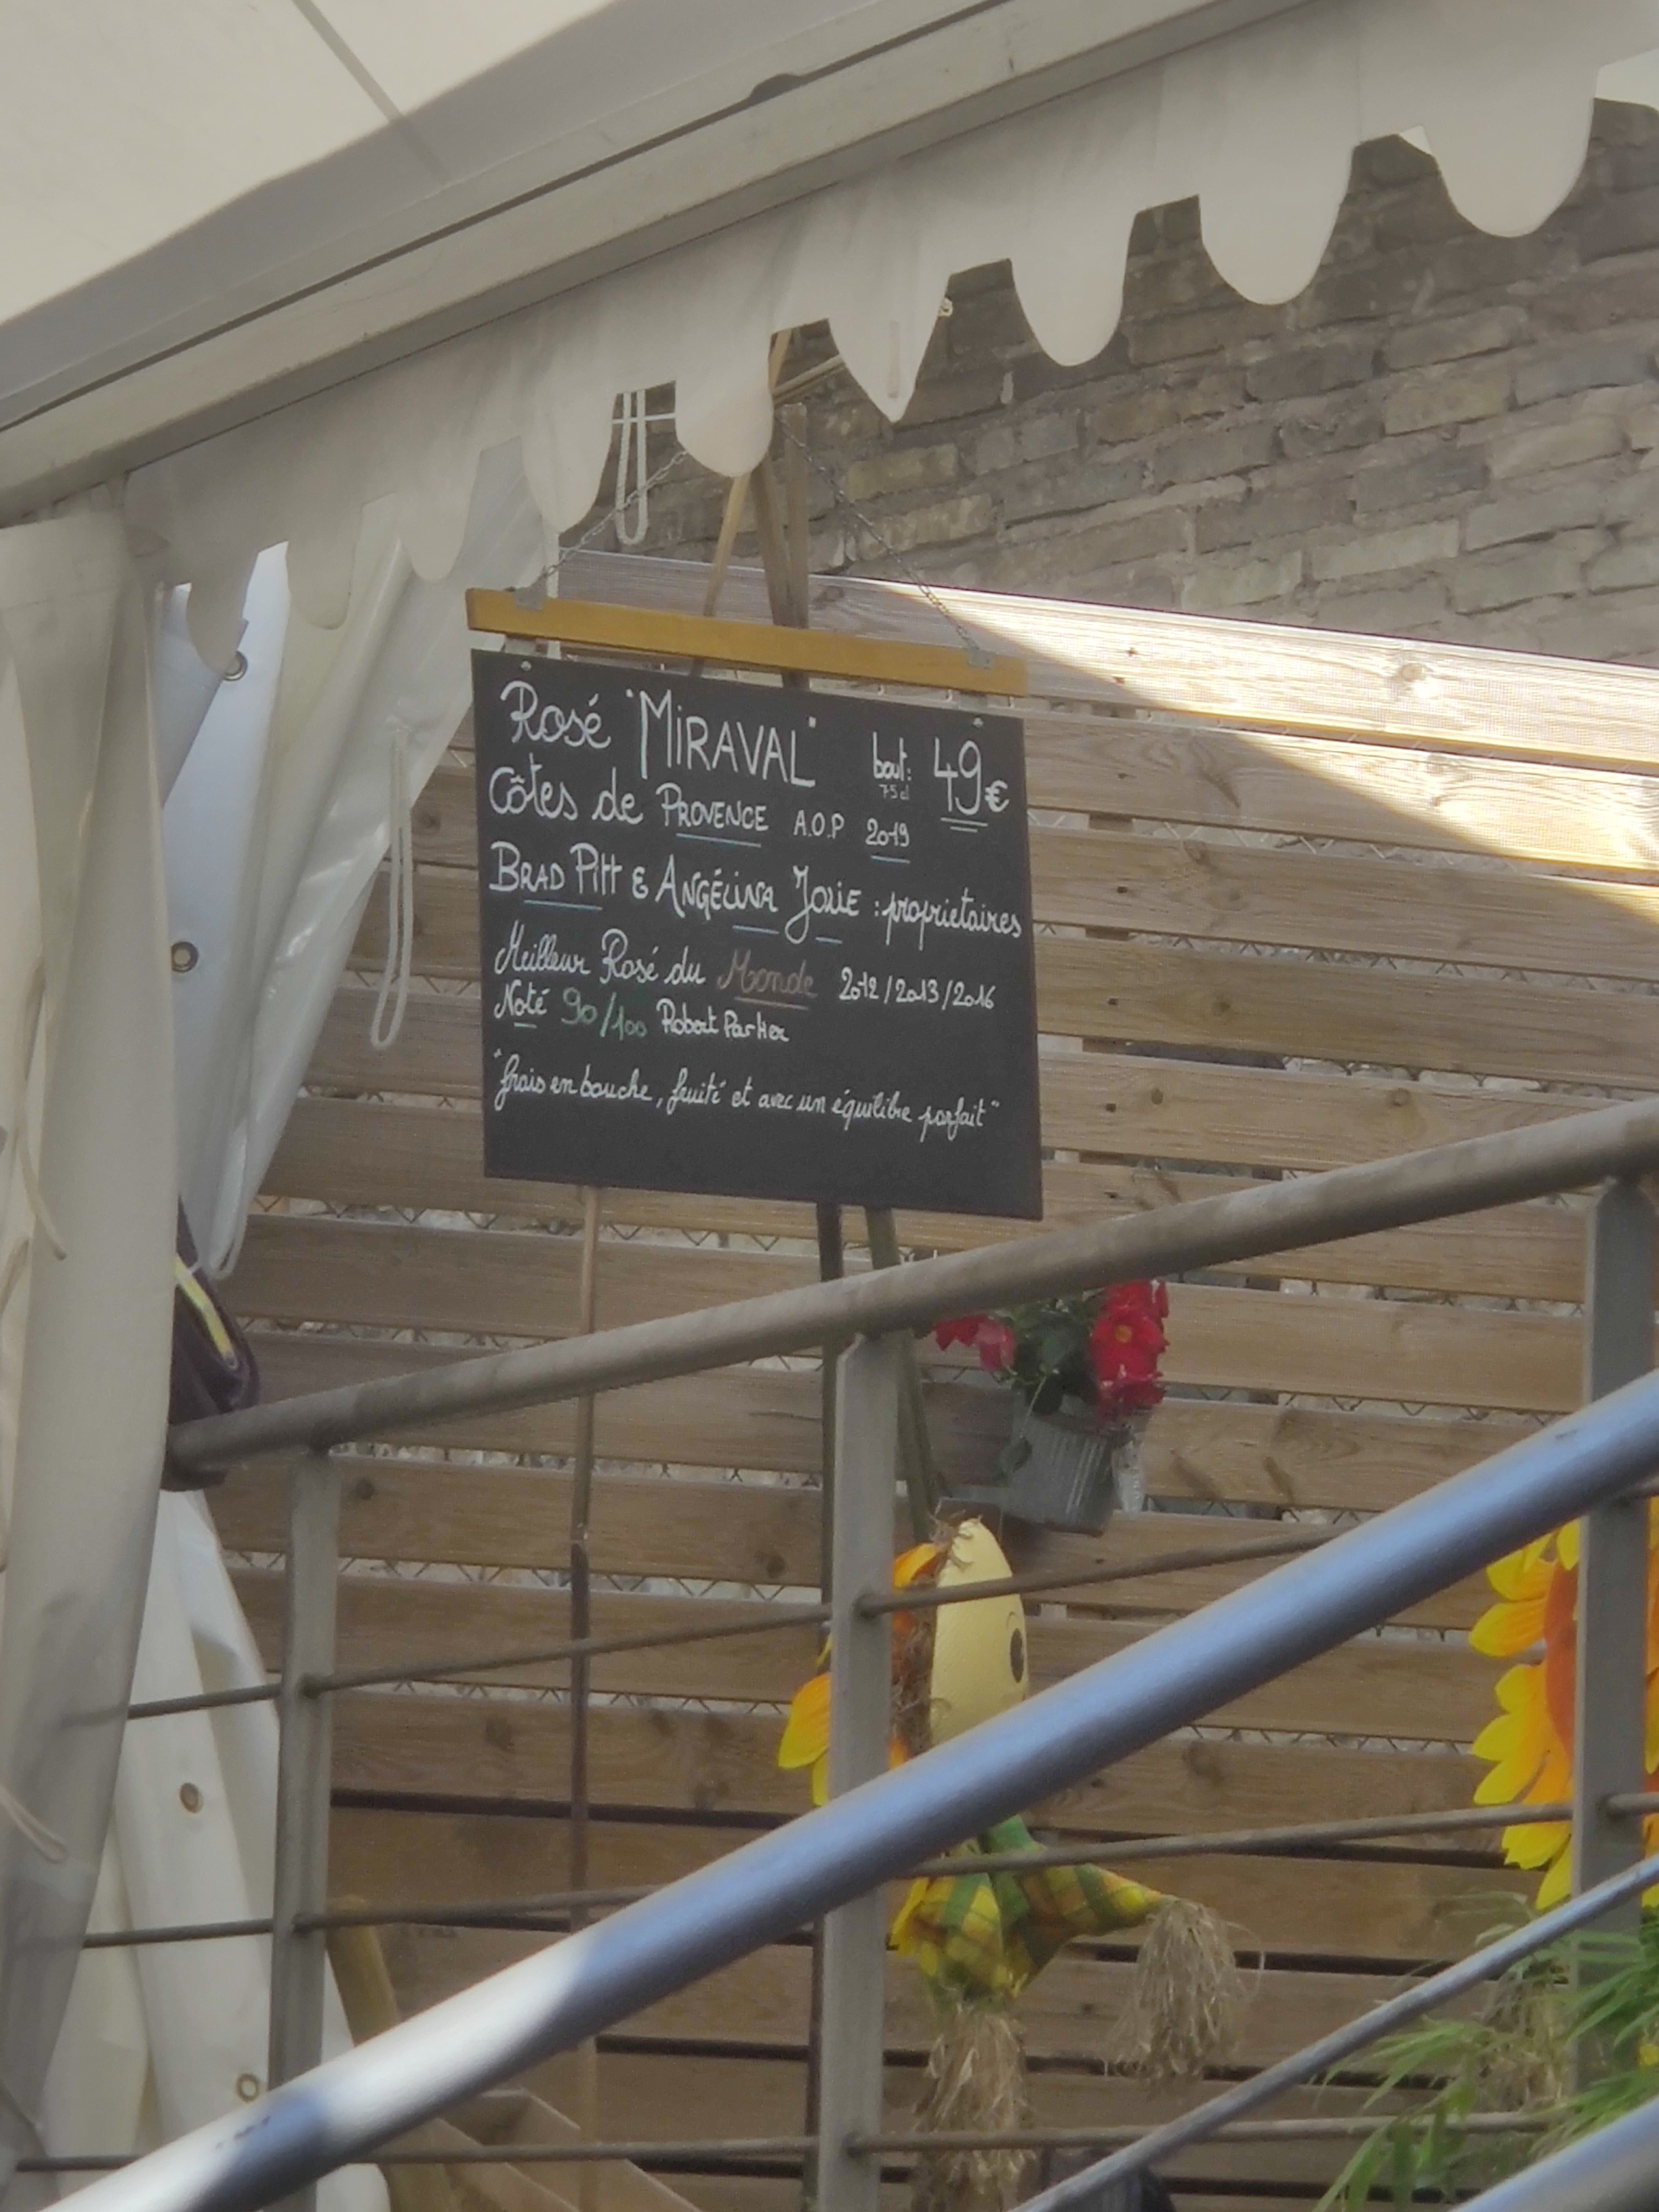 Rosé "MIRAVAL" bout: 49€
75cl
Côtes de PROVENCE A.O.P 2019
BRAD PITT & ANGÉLINA JOLIE : proprietaires
Meilleur Rosé du Monde 2012/2013/2016
Noté 90/100 Robert Parker
"frais en bouche, fruité et avec un équilibre parfait"